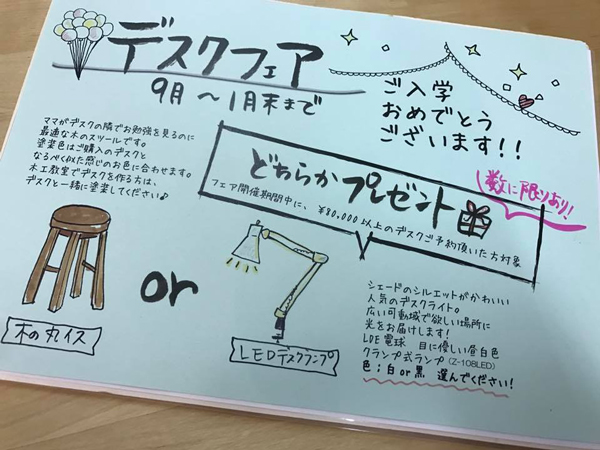 デスクフェア
9月 〜1月末まで
ご入学
おめでとう
ございます!!
ママがデスクの隣でお勉強を見るのに
最適な木のスツールです。
塗装色はご購入のデスクと
なるべく似た感じのお色に合わせます。
木工教室でデスクを作る方は、
デスクと一緒に塗装してください♪
どちらかプレゼント
数に限りあり!
フェア開催期間中に、¥80,000以上のデスクご予約頂いた方対象
木の丸イス
or
LEDデスクランプ
シェードのシルエットがかわいい
人気のデスクライト。
広い可動域で欲しい場所に
光をお届けします!
LDE電球 目に優しい昼白色
クランプ式ランプ(Z-108LED)
色;白or黒 選んでください!